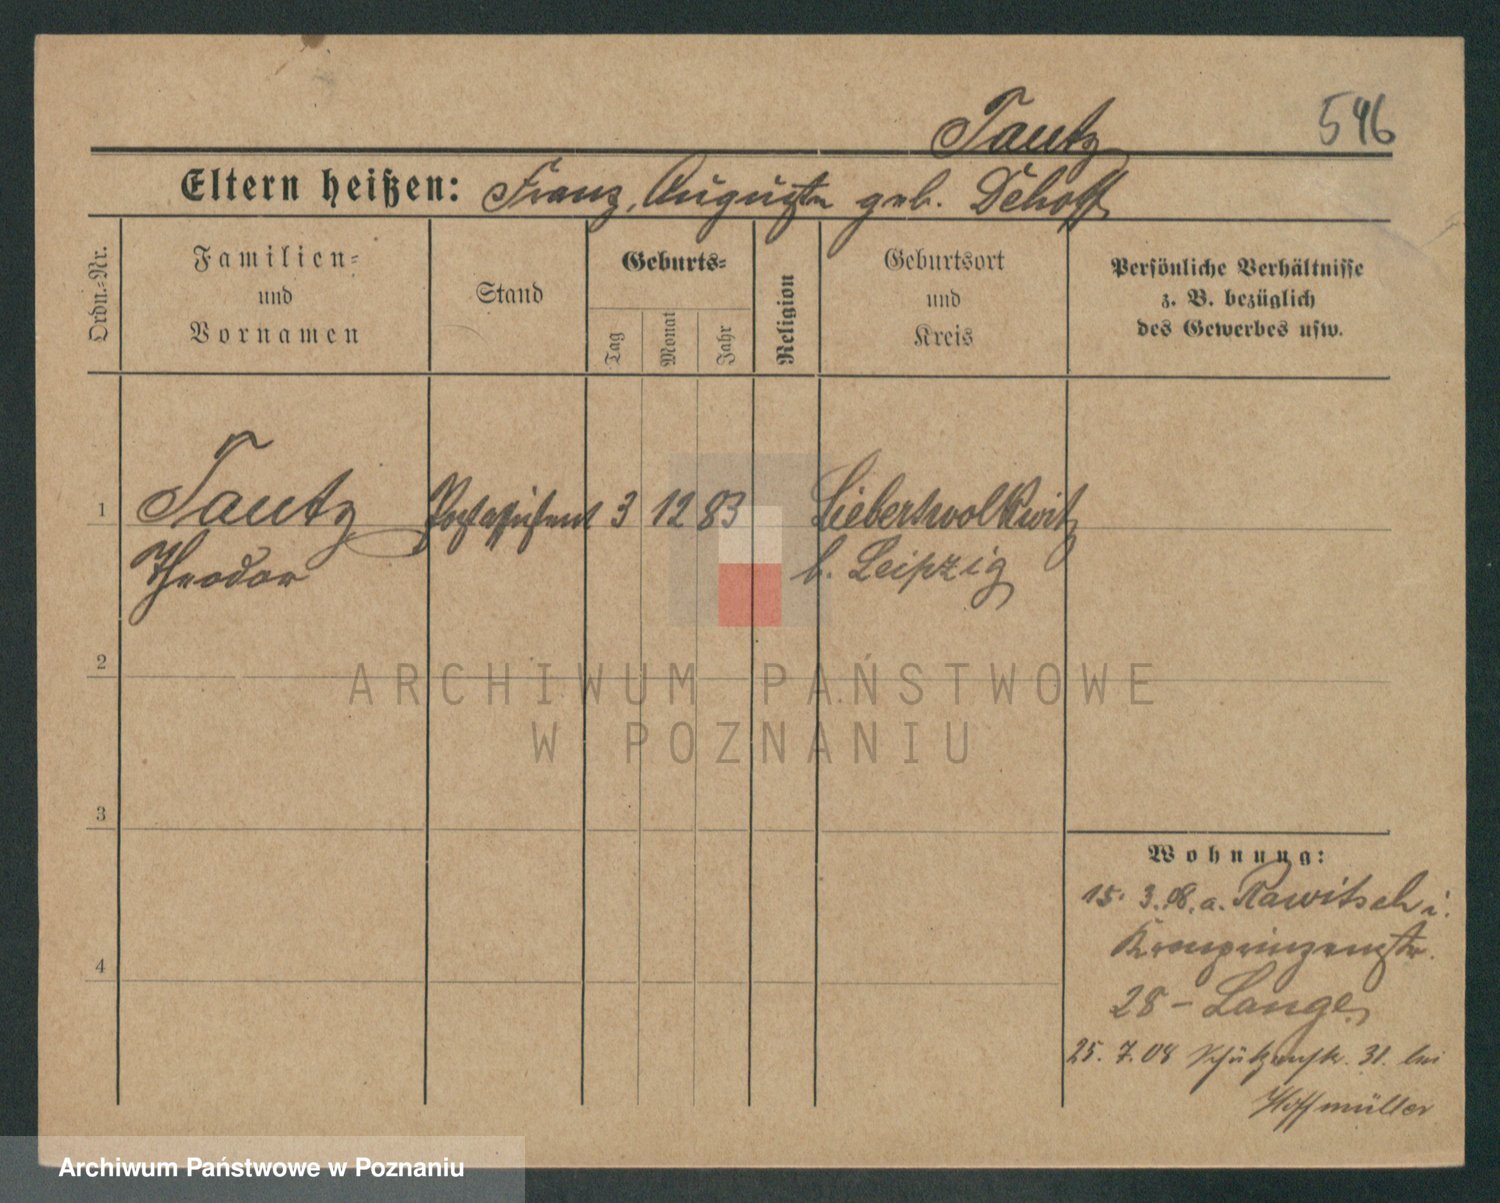 Tautz
546
Eltern heißen: Franz, Auguste geb. Dehoff
Ordn.-Nr.
Familien-
und
Vornamen
Stand
Geburts-
Tag
Monat
Jahr
Religion
Geburtsort
und
Kreis
Persönliche Verhältnisse
z. B. bezüglich
des Gewerbes usw.
1 Tautz Postassistent 3 12 83 Lieberswolkwitz
Theodor b. Leipzig
2
3
4
ARCHIWUM PAŃSTWOWE
W POZNANIU
Wohnung:
15. 3. 08. a. Rawitsch i.
Kronprinzenstr.
28 - Lange
25. 7. 08 Schützenstr. 31. bei
Hoffmüller
Archiwum Państwowe w Poznaniu